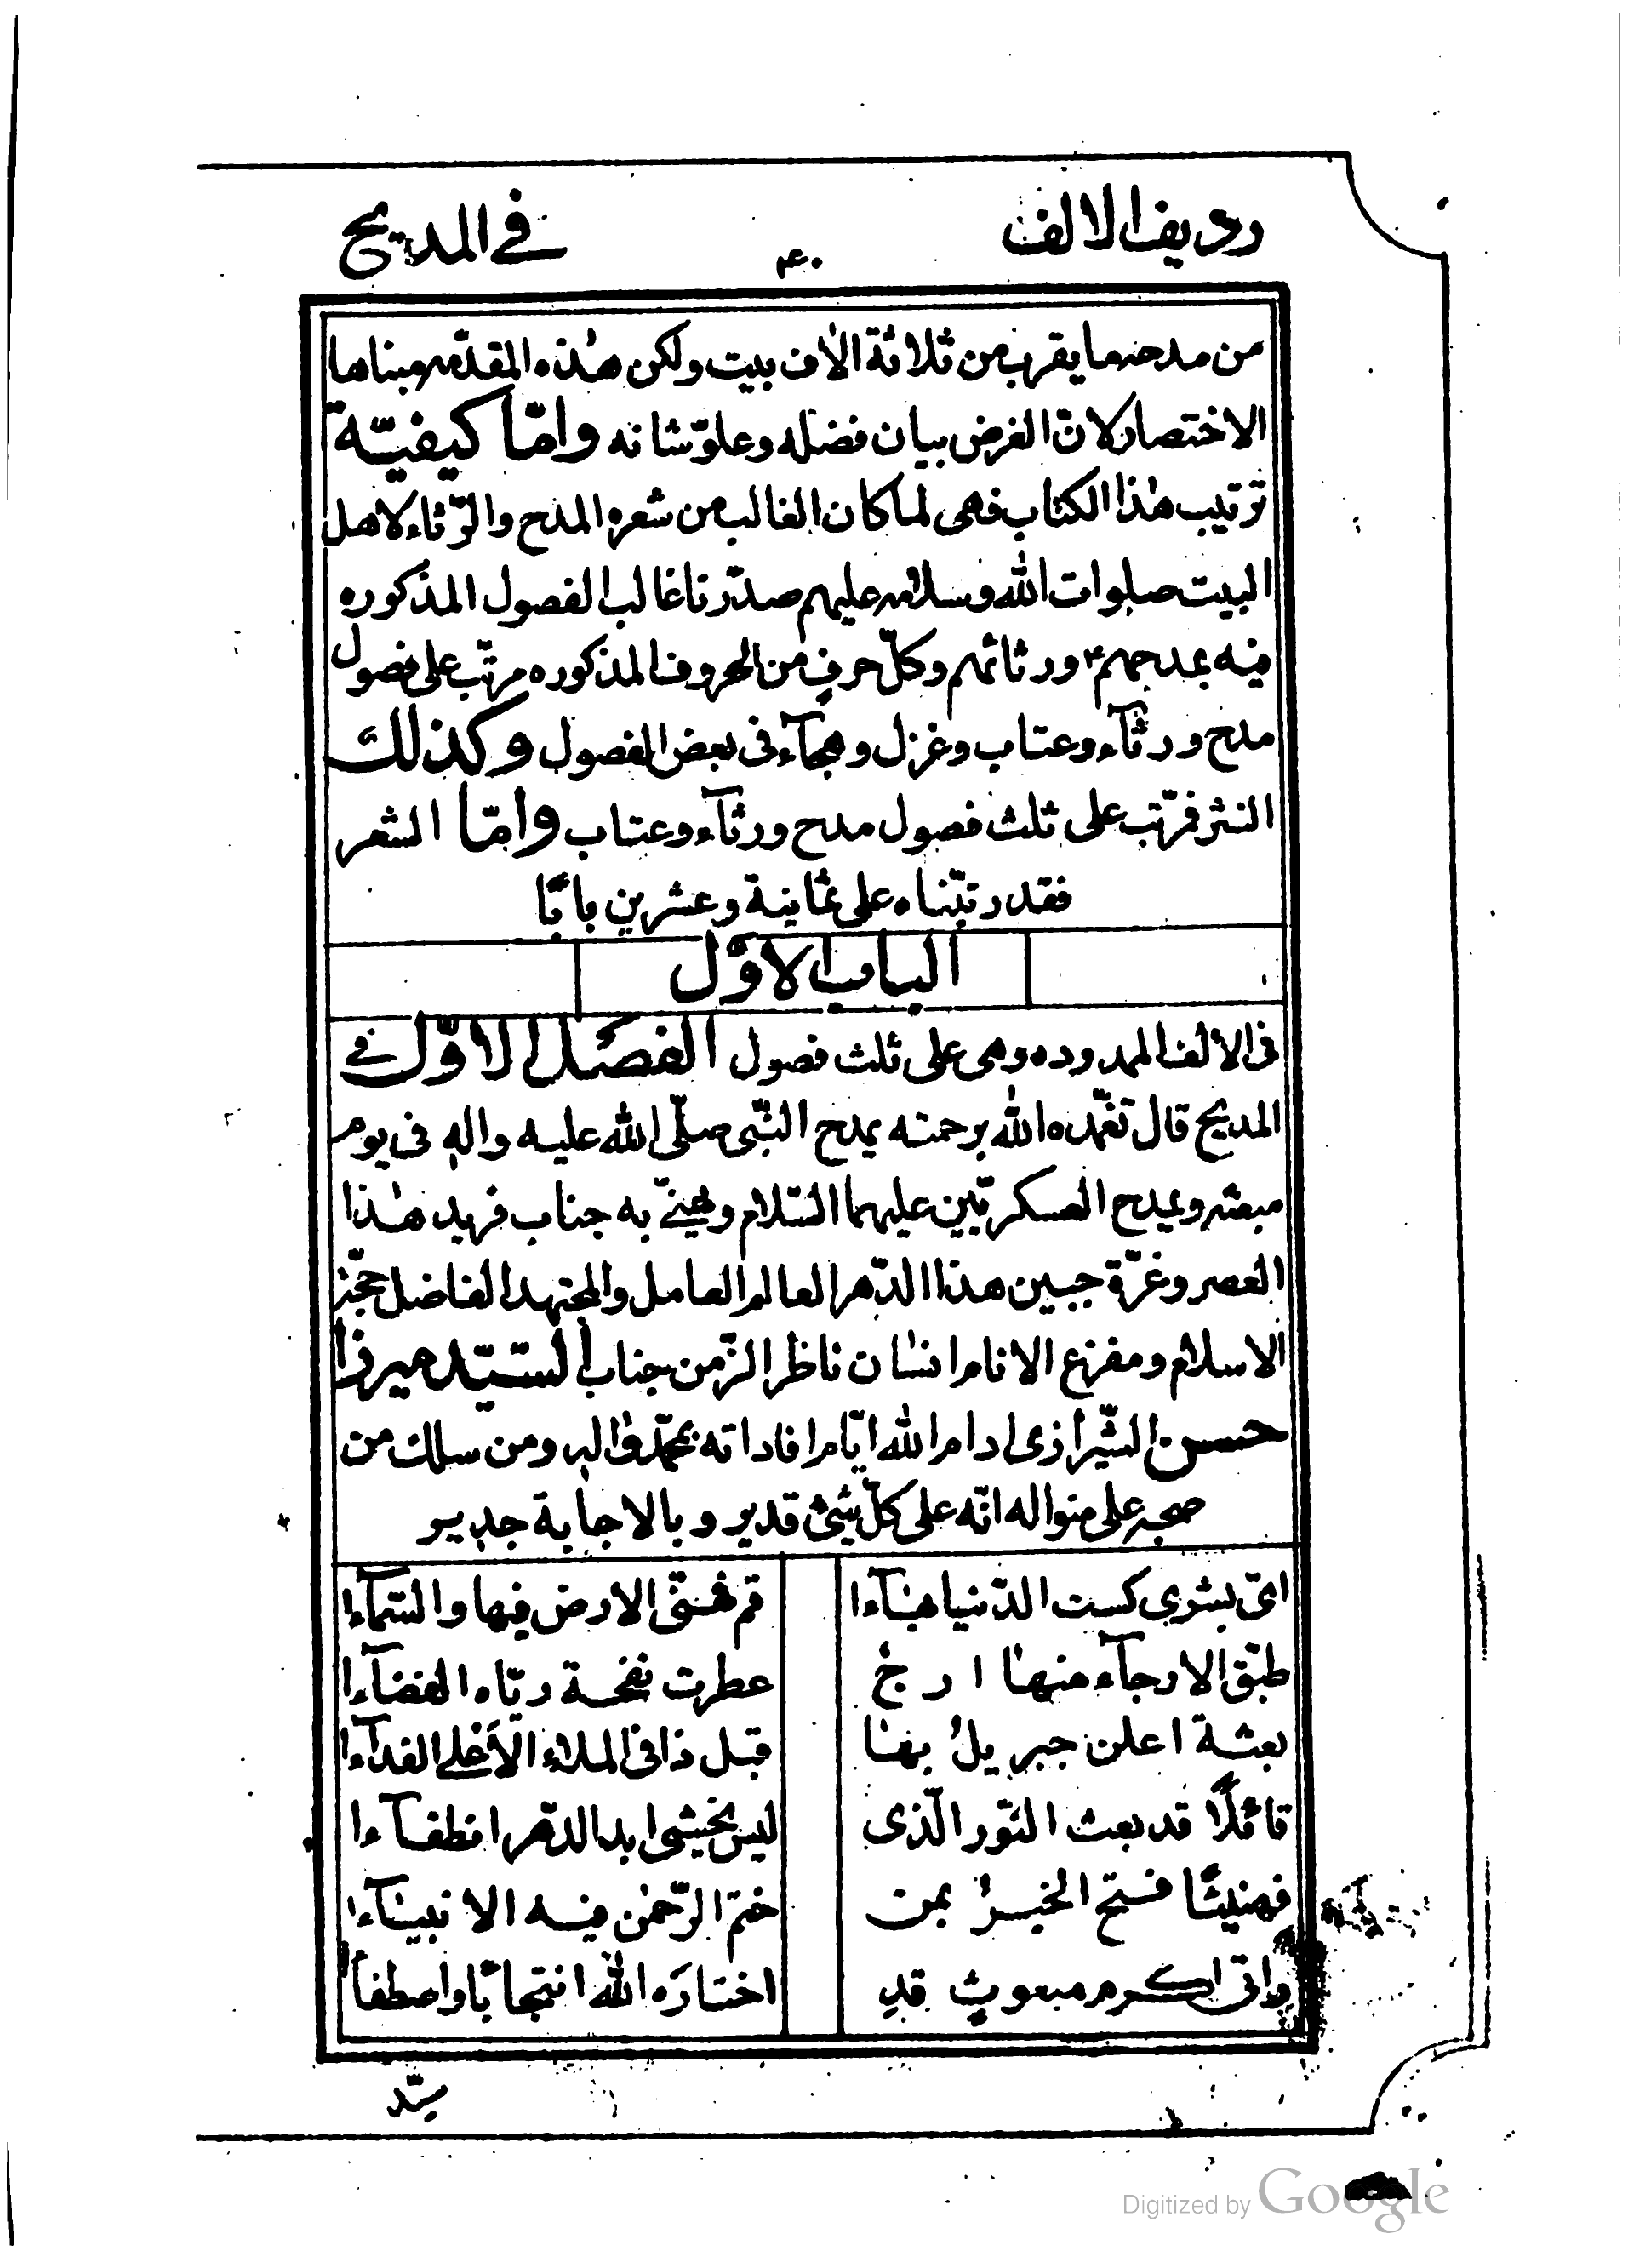 رديف الالف
۴۰
في المديح
من مدحه ما يقرب من ثلاثة الاف بيت ولكن هذه المقدّمه مبناها
الاختصار لانّ الغرض بيان فضله وعلوّ شانه وامّا كيفيّة
ترتيب هذا الكتاب فهى لما كان الغالب من شعره المدح والرّثاء لاهل
البيت صلوات الله وسلامه عليهم صدّرنا غالب الفصول المذكوره
فيه بمدحهم ورثائهم وكلّ حرفٍ من الحروف المذكوره مرتّب على فصول
مدح ورثآء وعتاب وغزل وهجآء فى بعض الفصول وكذلك
النثر فمرتّب على ثلث فصول مدح ورثآء وعتاب وامّا الشعر
فقد رتبّناه على ثمانية وعشرين بابًا
الباب الاوّل
فى الالف الممدوده وهى على ثلث فصول الفصل الاوّل في
المديح قال تغمّده الله برحمته يمدح النّبى صلّى الله عليه واله فى يوم
مبعثه ويمدح العسكريّين عليهما السّلام ويهنّى به جناب فريد هذا
العصر وغرّة جبين هذا الدّهر العالم العامل والمجتهد الفاضل حجّة
الاسلام ومفزع الانام انسان ناظر الزّمن جناب السيّد ميرزا
حسن الشّيرازى ادام الله ايّام افاداته بمحمّد واله ومن سلك من
صحبه على منواله انّه على كلّ شئ قدير وبالاجابة جدير
اىّ بشرى كست الدّنيا هنآءا
قم فهنّى الارض فيها والسّمآءا
طبّق الارجآء منها ارج
عطرت نفحة ريّاه الفضآءا
بعثة اعلن جبريلُ بها
قبل ذا فى الملاء الأعلى النداءا
قائلًا قد بعث النّور الّذى
ليس يخشى ابد الدّهر انطفآءا
فهنيئًا فتح الخيرُ بمن
ختم الرّحمٰن فيه الانبيآءا
واتى اكرم مبعوثٍ قدِ
اختارَه الله انتجابًا واصطفآا
سيّد
Digitized by Google